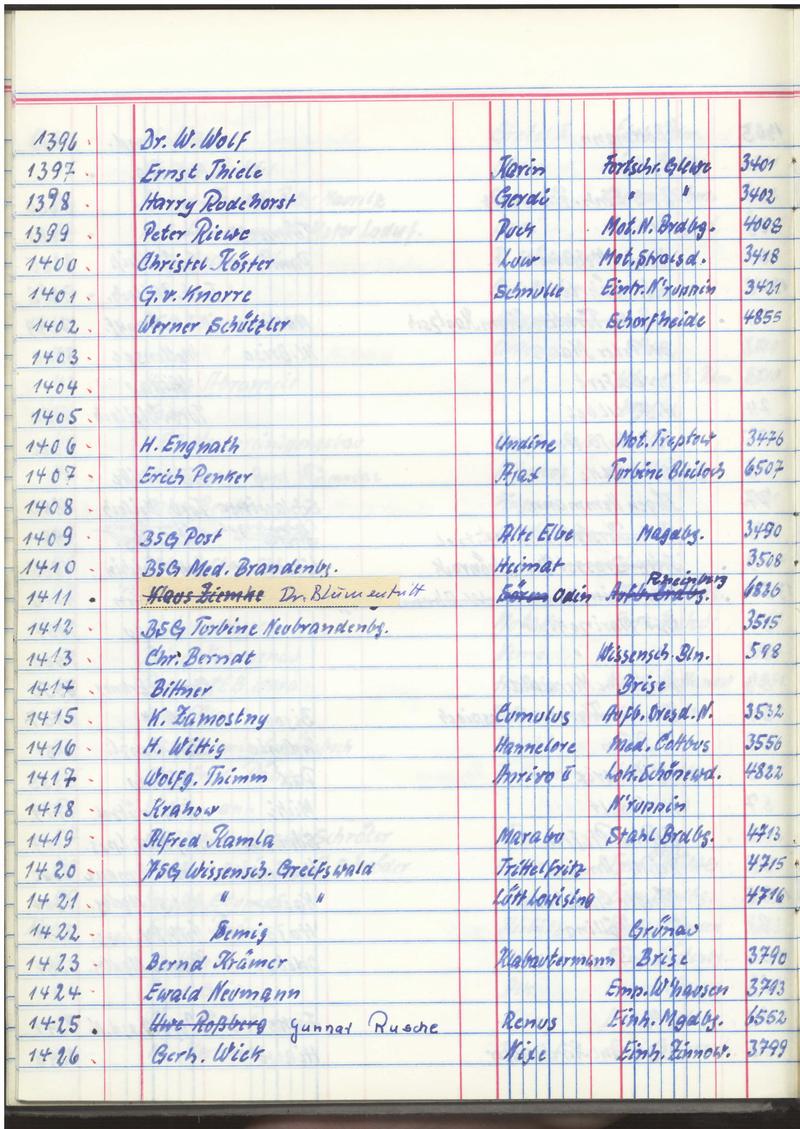 1396. Dr. W. Wolf
1397. Ernst Thiele Karin Fortschr. Glewe 3401
1398. Harry Rodehorst Gerdi " " 3402
1399. Peter Riewe Puck Mot. N. Brdbg. 4008
1400. Christel Köster Luv Mot. Strals. 3418
1401. G. v. Knorre Schnulle Eintr. N'ruppin 3421
1402. Werner Schützler Schorfheide 4855
1403.
1404.
1405.
1406. H. Engnath Undine Mot. Treptow 3476
1407. Erich Penker Ajax Turbine Bleiloch 6507
1408.
1409. BSG Post Alte Elbe Magdbg. 3490
1410. BSG Med. Brandenbg. Heimat 3508
1411. Klaus Ziemke Dr. Blumentritt Odin Aufb. Brdbg. Rheinsberg 6826
1412. BSG Turbine Neubrandenbg. 3515
1413. Chr. Berndt Wissensch. Bln. 598
1414. Bittner Brise
1415. K. Zamostny Cumulus Aufb. Dresd. N. 3532
1416. H. Wittig Hannelore Med. Cottbus 3556
1417. Wolfg. Thimm Anrivo II Lok. Schönewd. 4822
1418. Krahow N'ruppin
1419. Alfred Kamla Marabu Stahl Brdbg. 4713
1420. HSG Wissensch. Greifswald Trittelfritz 4715
1421. " " Lütt Lowising 4716
1422. Semig Grünau
1423. Bernd Krämer Klabautermann Brise 3790
1424. Ewald Neumann Emp. W'hausen 3793
1425. Uwe Roßberg Gunnar Rusche Renus Einh. Mgdbg. 6552
1426. Gerh. Wick Nixe Einh. Zinnow. 3799